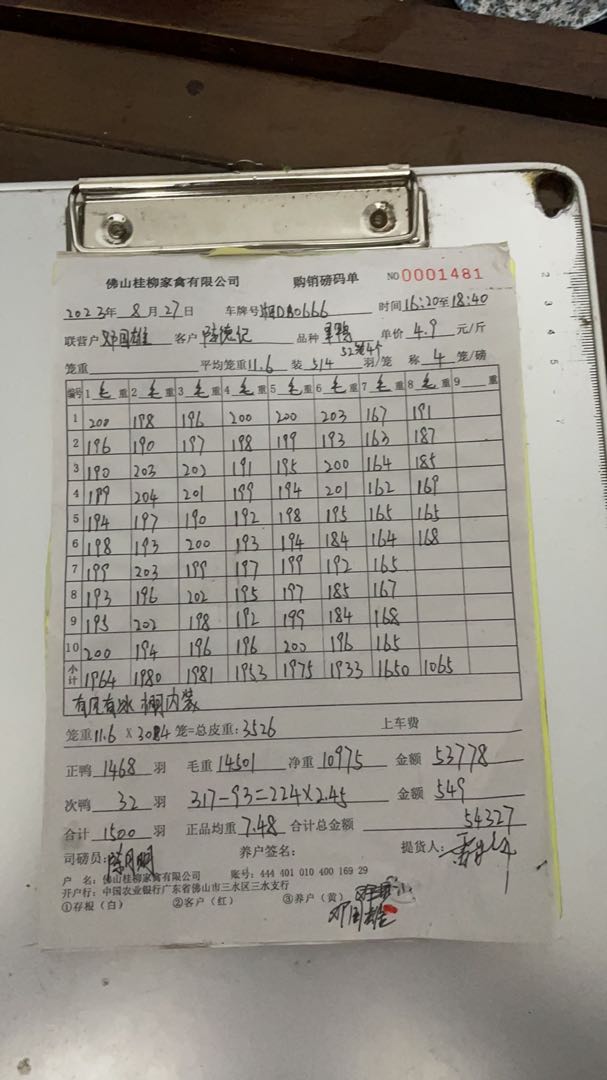 佛山桂柳家禽有限公司 购销磅码单 NO 0001481
2023年 8月 27日 车牌号 湘DB0666 时间 16:20至18:40
联营户 邓国雄 客户 陆德记 品种 单价 4.9 元/斤
52装4个
笼重 平均笼重 11.6 装 5/4 羽/笼 称 4 笼/磅
编号 1 毛 重 2 毛 重 3 毛 重 4 毛 重 5 毛 重 6 毛 重 7 毛 重 8 毛 重 9 重
1 200 198 196 200 200 203 167 191
2 196 190 197 198 199 193 163 187
3 190 203 202 191 195 200 164 185
4 199 204 201 199 194 201 162 169
5 194 197 190 192 198 195 165 165
6 198 193 200 193 194 184 164 168
7 199 203 199 197 199 192 165
8 193 196 202 195 197 185 167
9 195 202 198 192 199 184 168
10 200 194 196 196 200 196 165
小计 1964 1980 1981 1953 1975 1933 1650 1065
有风有冰 棚内装
笼重 11.6 X 304 笼=总皮重: 3526 上车费
正鸭 1468 羽 毛重 14501 净重 10975 金额 53778
次鸭 32 羽 317-93=224×2.45 金额 549
合计 1500 羽 正品均重 7.48 合计总金额 54327
司磅员: 养户签名: 提货人:
户 名: 佛山桂柳家禽有限公司 账号: 444 401 010 400 169 29
开户行: 中国农业银行广东省佛山市三水区三水支行
①存根（白） ②客户（红） ③养户（黄）
邓国雄